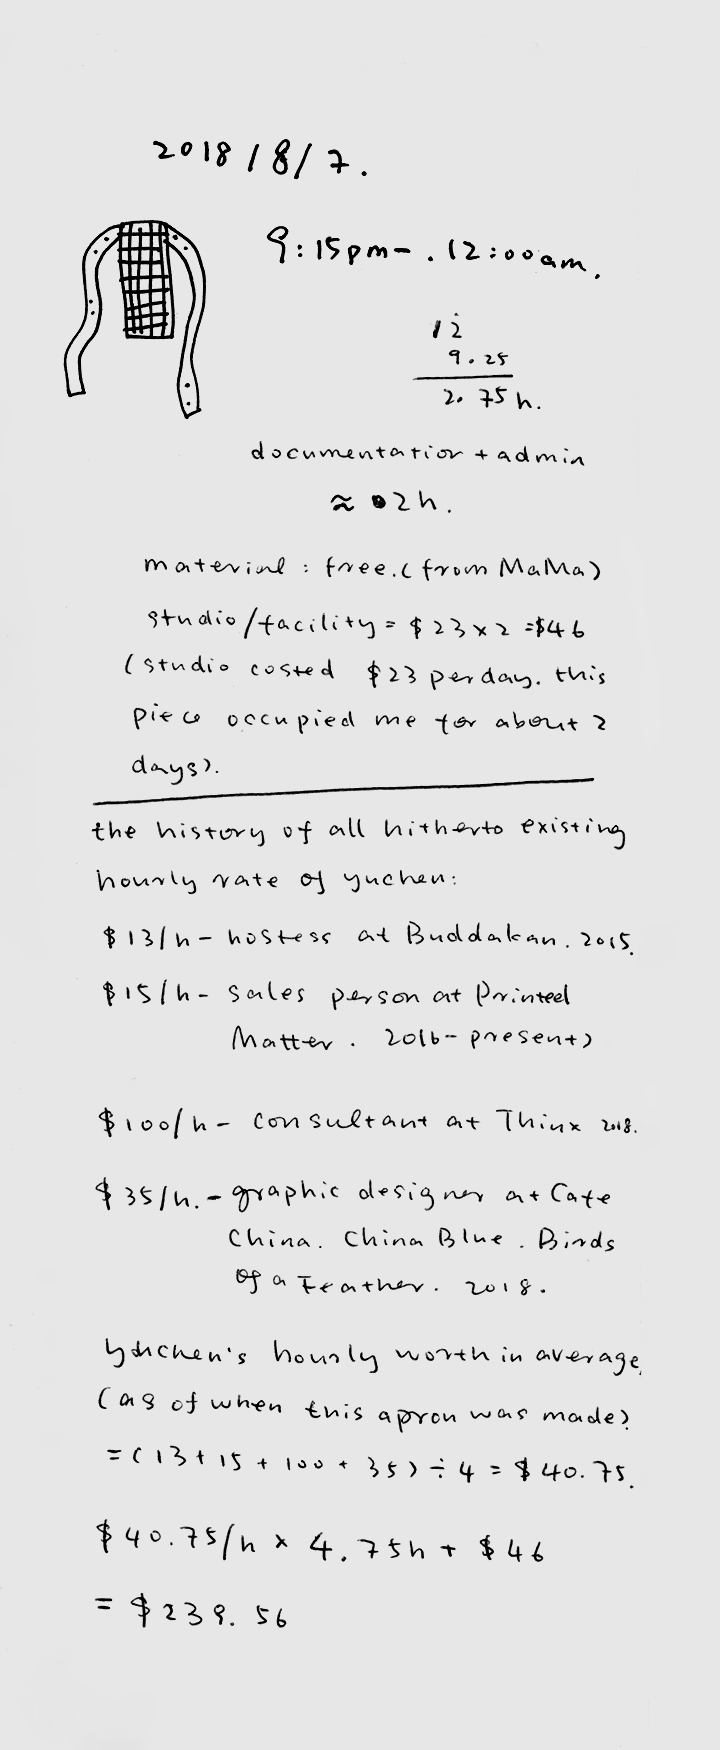 2018/8/7.
9:15pm-.12:00am.
12
9.25
2.75h.
documentation + admin
≈ 2h.
material : free. (from MaMa)
studio/facility = $23x2 =$46
(studio costed $23 per day. this
piece occupied me for about 2
days).
the history of all hitherto existing
hourly rate of yuchen:
$13/h - hostess at Buddakan. 2015.
$15/h - sales person at Printed
Matter. 2016- present)
$100/h - consultant at Thinx 2018.
$35/h. - graphic designer at Cafe
China. China Blue. Birds
of a Feather. 2018.
yuchen's hourly worth in average
(as of when this apron was made)
= (13 + 15 + 100 + 35) ÷ 4 = $40.75.
$40.75/h x 4.75h + $46
= $239.56